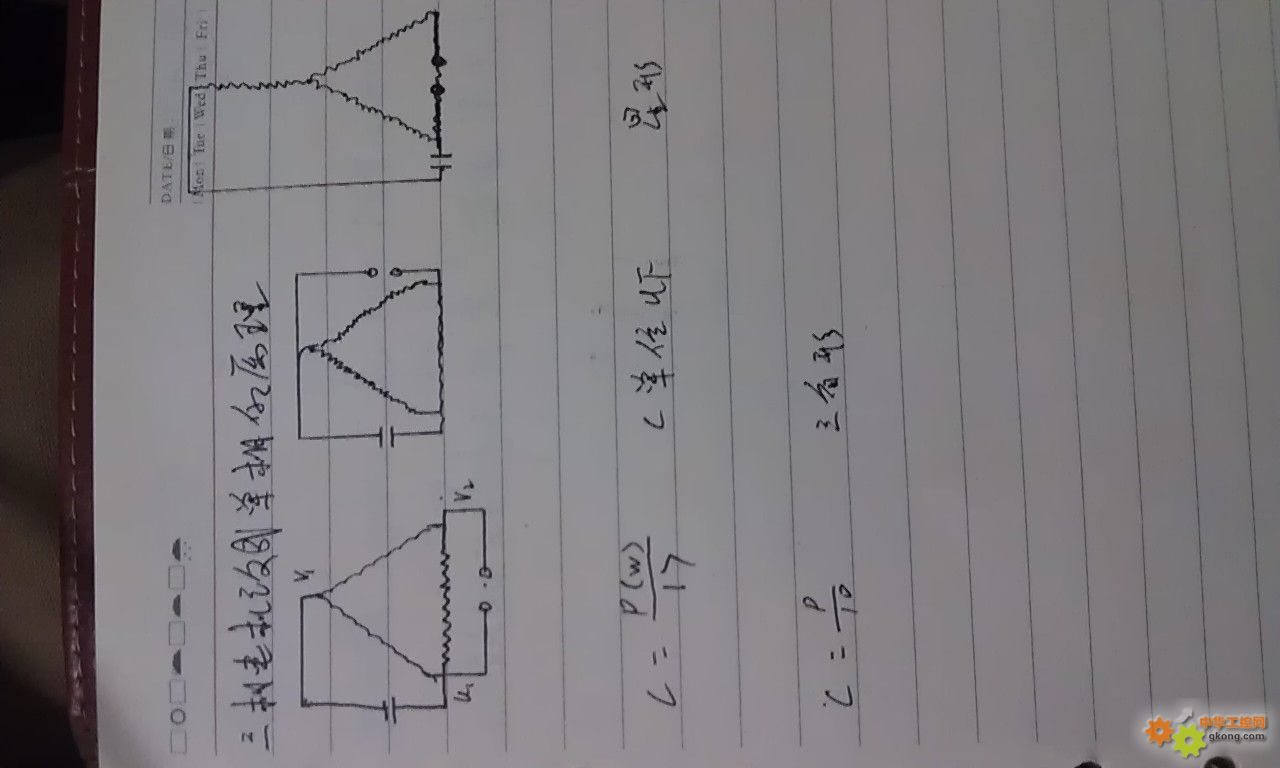 DATE/日期
Mon Tue Wed Thu Fri
三相电机改到单相
V₁
U₁
V₂
C = P(W)/17 C单位 星形
C = P/10 三角形
中华工控网
gkong.com